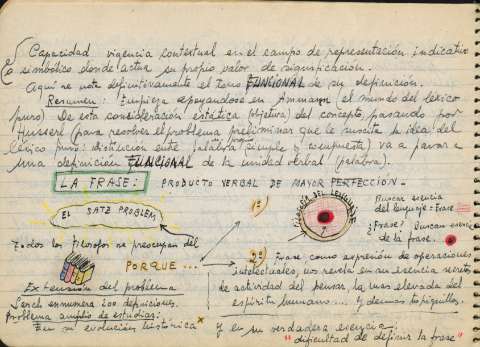 Capacidad vigencia contextual en el campo de representación indicativo
simbólico donde actua su propio valor de significación.
Aquí se nota definitivamente el tono FUNCIONAL de su definición.
Resumen: Empieza apoyandose en Ammann (el mundo del léxico
puro). De esta consideración estática (objetiva) del concepto, pasando por
Husserl (para resolver el problema preliminar que le suscita la idea del
léxico puro: distinción entre palabra simple y compuesta) va a parar a
una definición FUNCIONAL de la unidad verbal (palabra).
LA FRASE: PRODUCTO VERBAL DE MAYOR PERFECCIÓN -
EL SATZ PROBLEM
1º)
FILOSOFÍA DEL LENGUAJE
Buscar esencia
del lenguaje = Frase
¿Frase? Buscar esencia
de la frase.
Todos los filosofos se preocupan del
PORQUE ...
2º) Frase como expresión de operaciones
intelectuales, nos revela en su esencia secretos
de actividad del pensar, la mas elevada del
espíritu humano.... Y demas topiquillos.
Extensión del problema
Serch enumera 200 definiciones.
Problema amplio de estudiar:
En su evolución histórica
Y en su verdadera esencia:
"dificultad de definir la frase"